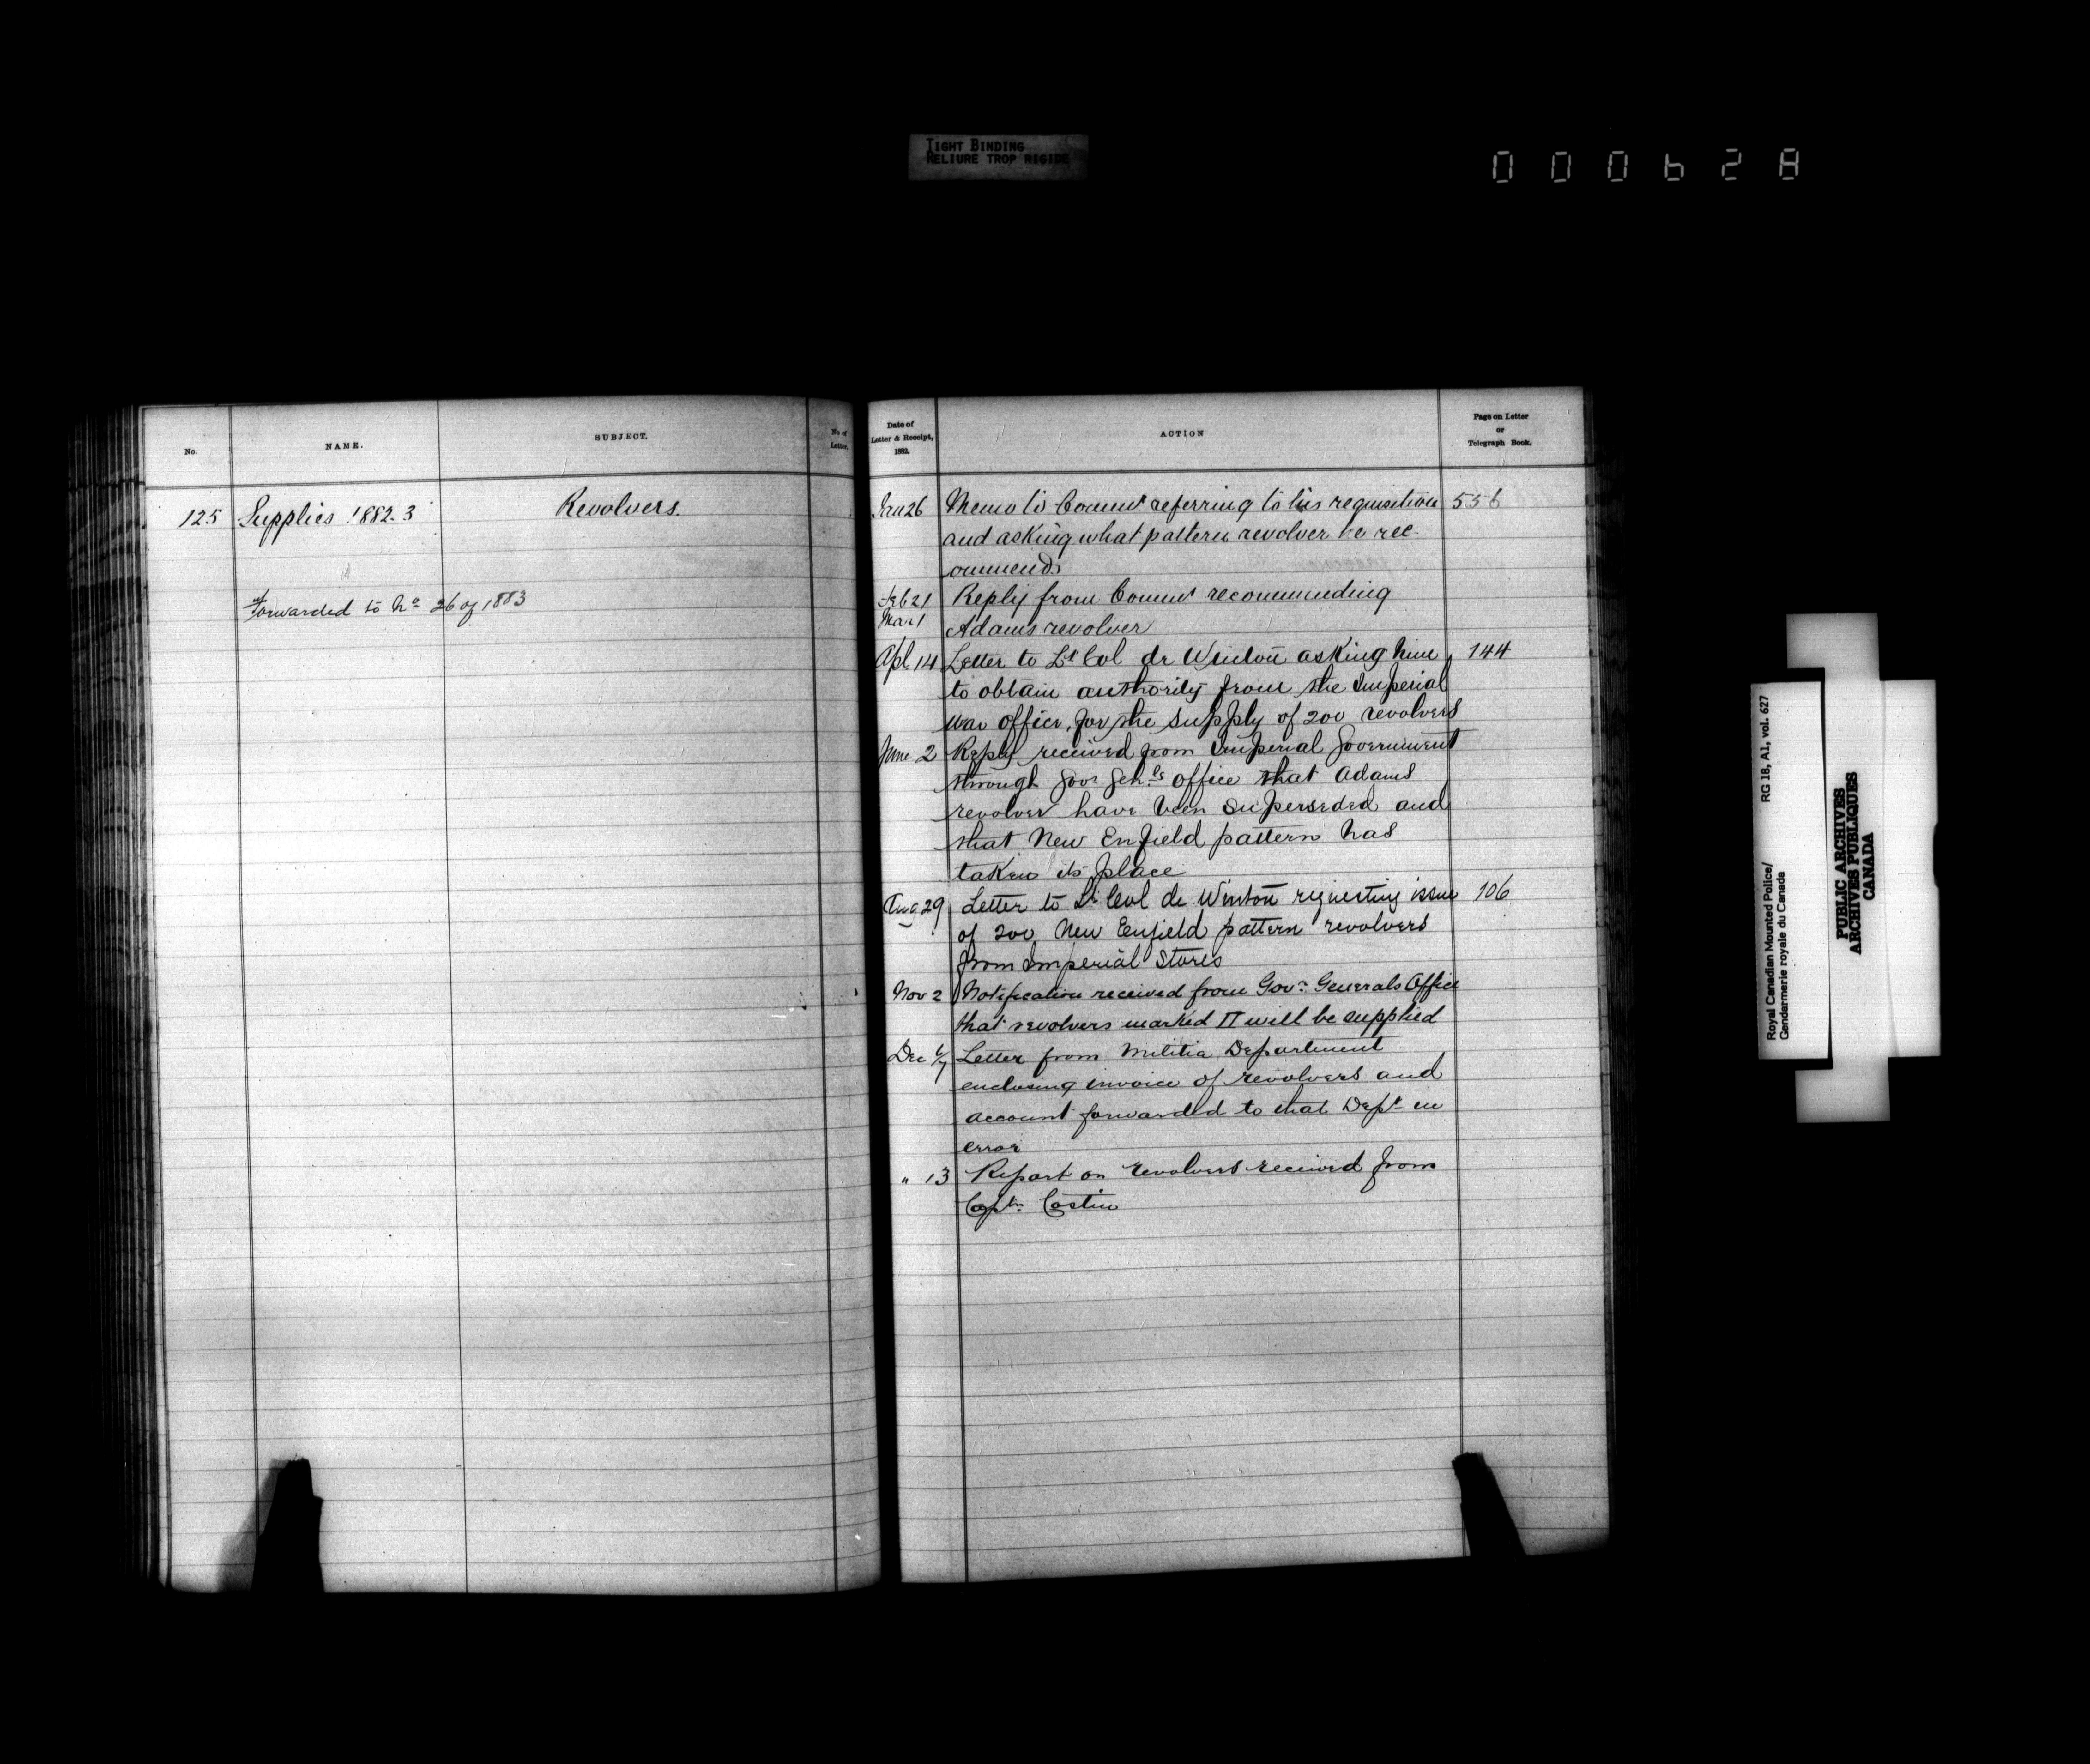 TIGHT BINDING
RELIURE TROP RIGIDE
000628
No.
NAME.
SUBJECT.
No of
Letter.
Date of
Letter & Receipt,
1882.
ACTION
Page on Letter
or
Telegraph Book.
125 Supplies 1882-3 Revolvers.
Forwarded to No 26 of 1883
Jan 26 Memo to Commr referring to his requisition 556
and asking what pattern revolver he rec-
ommends
Feb 21 Reply from Commr recommending
Mar 1 Adams revolver
Apl 14 Letter to Lt Col de Winton asking him 144
to obtain authority from the Imperial
War office for the supply of 200 revolvers
June 2 Reply received from Imperial Government
through Govr Genls office that Adams
revolver have been superseded and
that New Enfield pattern has
taken its place
Aug 29 Letter to Lt Col de Winton requesting issue 106
of 200 New Enfield pattern revolvers
from Imperial Stores
Nov 2 Notification received from Govr Generals Office
that revolvers marked II will be supplied
Dec 6/7 Letter from Militia Department
enclosing invoice of revolvers and
account forwarded to that Dept in
error
" 13 Report on revolvers received from
Captn Costin
Royal Canadian Mounted Police/ RG 18, A1, vol. 627
Gendarmerie royale du Canada
PUBLIC ARCHIVES
ARCHIVES PUBLIQUES
CANADA